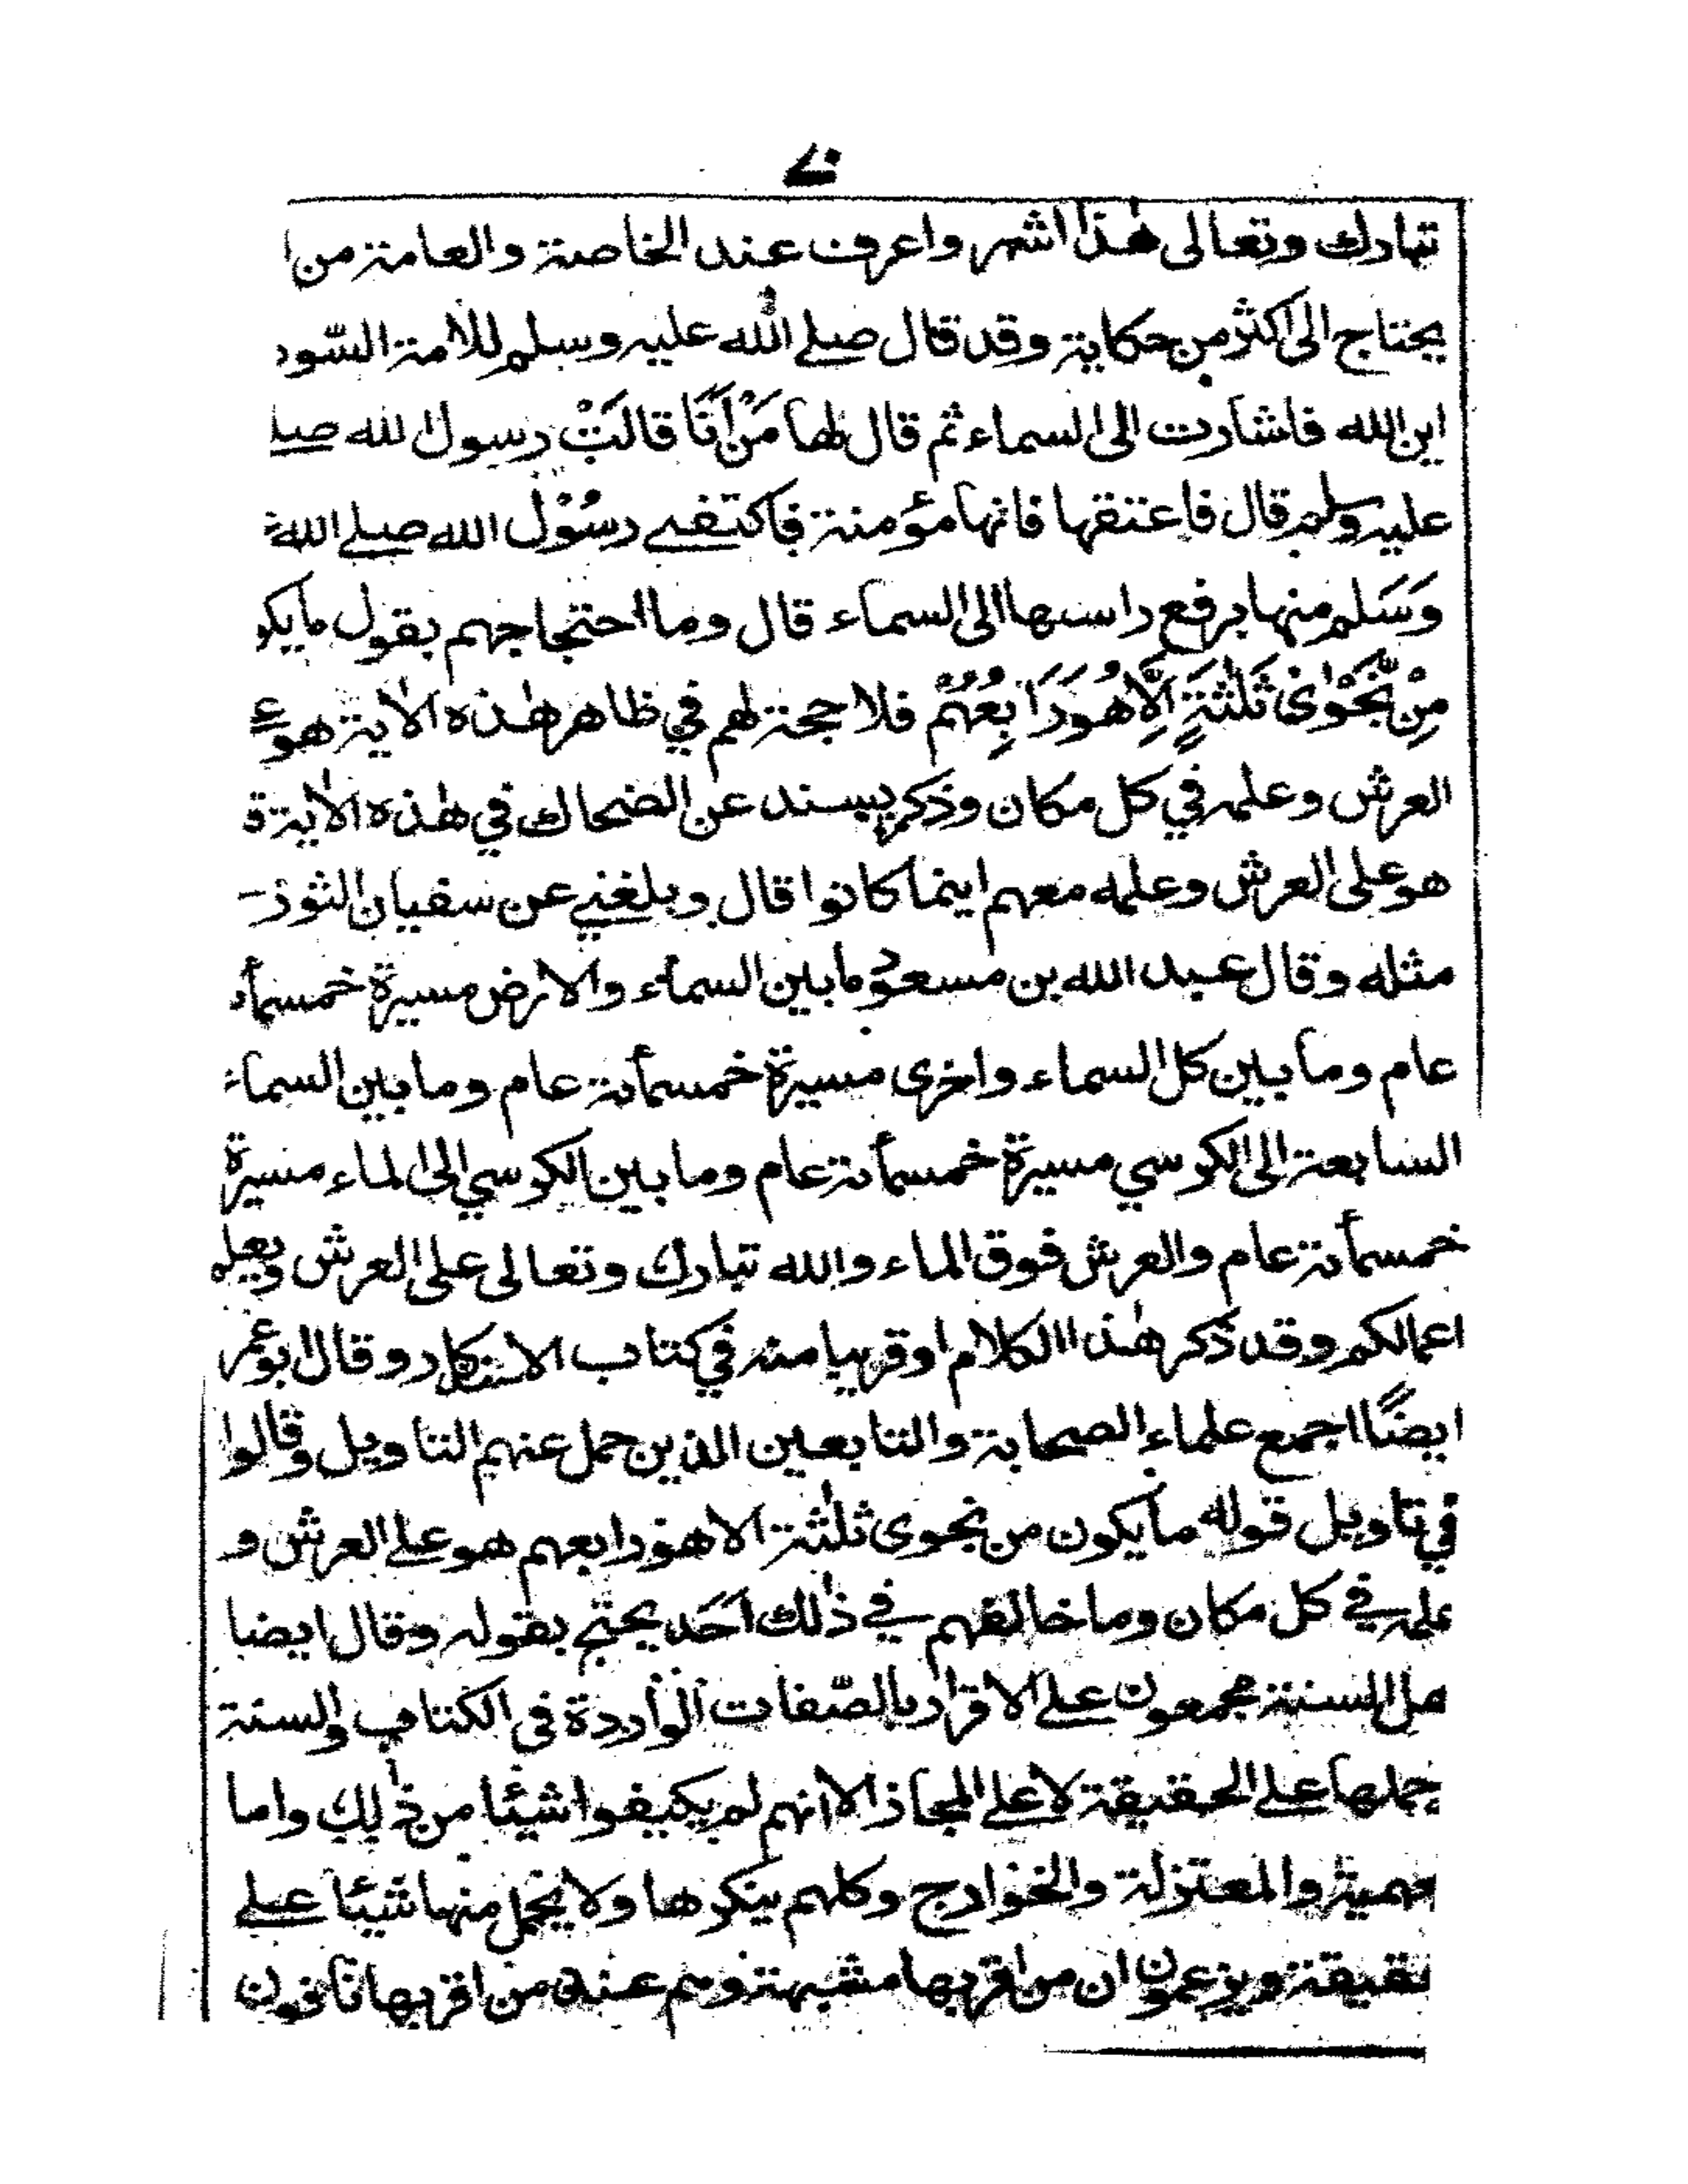 تبارك وتعالى هٰذا اشهر واعرف عند الخاصة والعامة من ا
يحتاج الى اكثر من حكاية وقد قال صلے الله عليه وسلم للامة السود
اين الله فاشارت الى السماء ثم قال لها مَنْ اَنَا قالَتْ رسول الله صلے
عليه وسلم قال فاعتقها فانها مؤمنة فاكتفے رسُوْل الله صلے الله
وَسَلم منها برفع راسها الى السماء قال وما احتجاجهم بقول مايكو
مِنْ نَّجْوٰى ثَلٰثَةٍ اِلَّا هُوَ رَابِعُهُمْ فلا حجة لهم في ظاهر هٰذه الاٰية هو ع
العرش وعلمه في كل مكان وذكر بسند عن الضحاك في هٰذه الاٰية ق
هو على العرش وعلمه معهم اينما كانوا قال وبلغنے عن سفيان الثور
مثله وقال عبد الله بن مسعود ما بين السماء والارض مسيرة خمسمأ
عام وما بين كل السماء واخرى مسيرة خمسمأئة عام وما بين السماء
السابعة الى الكرسي مسيرة خمسمأئة عام وما بين الكرسي الى الماء مسيرة
خمسمأئة عام والعرش فوق الماء والله تبارك وتعالى على العرش ويعلم
اعمالكم وقد ذكر هٰذا الكلام او قريبا منه في كتاب الاستذكار وقال ابو عمر
ايضًا اجمع علماء الصحابة والتابعين الذين حمل عنهم التاويل وقالوا
في تاويل قوله ما يكون من نجوى ثلٰثة الا هو رابعهم هو علے العرش و
علمه في كل مكان وما خالفهم في ذٰلك احَد يحتج بقوله وقال ايضا
هل السنة مجمعون علے الاقرار بالصّفات الواردة فى الكتاب والسنة
حملها علے الحقيقة لا علے المجاز الا انهم لم يكيفوا شيئا من ذٰلك واما
جهمية والمعتزلة والخوارج وكلهم ينكرها ولا يحمل منها شيئا علے
حقيقة ويزعمون ان من اقر بها مشبهة وهم عند من اقر بها نافون